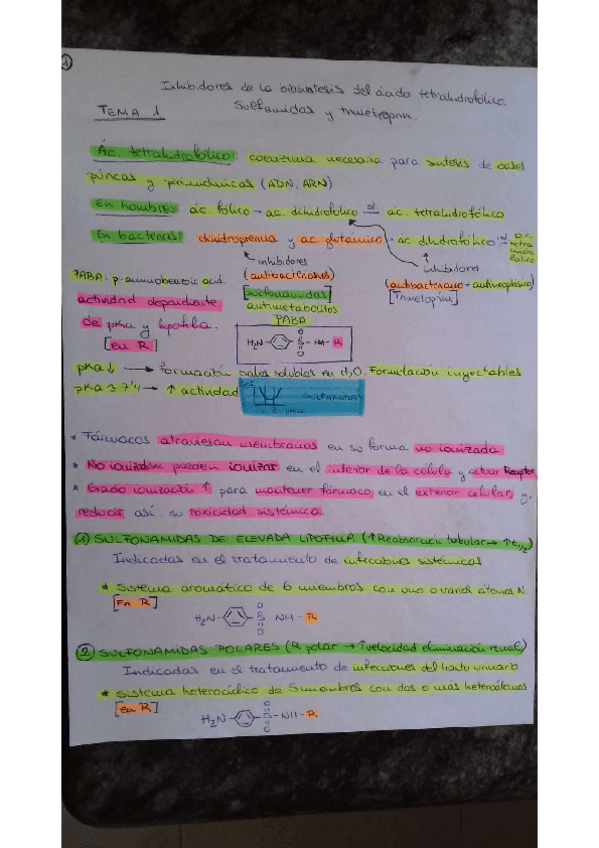 1
Inhibidores de la biosíntesis del ácido tetrahidrofólico.
TEMA 1
Sulfamidas y trimetoprim.
Ác. tetrahidrofólico: coenzima necesaria para síntesis de bases
púricas y pirimidínicas (ADN, ARN)
En hombres: ác. fólico → ác. dihidrofólico → ác. tetrahidrofólico
En bacterias: dihidropterina y ac. glutámico → ác. dihidrofólico
inhibidores
(antibacterianos)
[sulfonamidas]
antimetabolitos
PABA
inhibidores
(antibacteriano + antineoplásico)
[Trimetoprim]
PABA: p-aminobenzoic acid.
actividad dependiente
de pKa y lipofilia.
[en R]
H₂N- -S-NH-R
O
O
pKa ↓ → formación sales solubles en H₂O. Formulación inyectables
→ ↑ actividad
SULFAMIDAS
pKa
* Fármacos atraviesan membranas en su forma no ionizada
* No ionizadas pueden ionizar en el interior de la célula y activar Receptor
* Grado ionización ↑ para mantener fármaco en el exterior celular y
reducir así su toxicidad sistémica.
① SULFONAMIDAS DE ELEVADA LIPOFILIA (↑Reabsorción tubular → ↑t1/2)
Indicadas en el tratamiento de infecciones sistémicas
* Sistema aromático de 6 miembros con uno o varios átomos N.
[En R]
H₂N- -S-NH-R
O
O
② SULFONAMIDAS POLARES (R polar → ↑velocidad eliminación renal)
Indicadas en el tratamiento de infecciones del tracto urinario
* Sistema heterocíclico de 5 miembros con dos o más heteroátomos
[en R]
H₂N- -S-NH-R
O
O